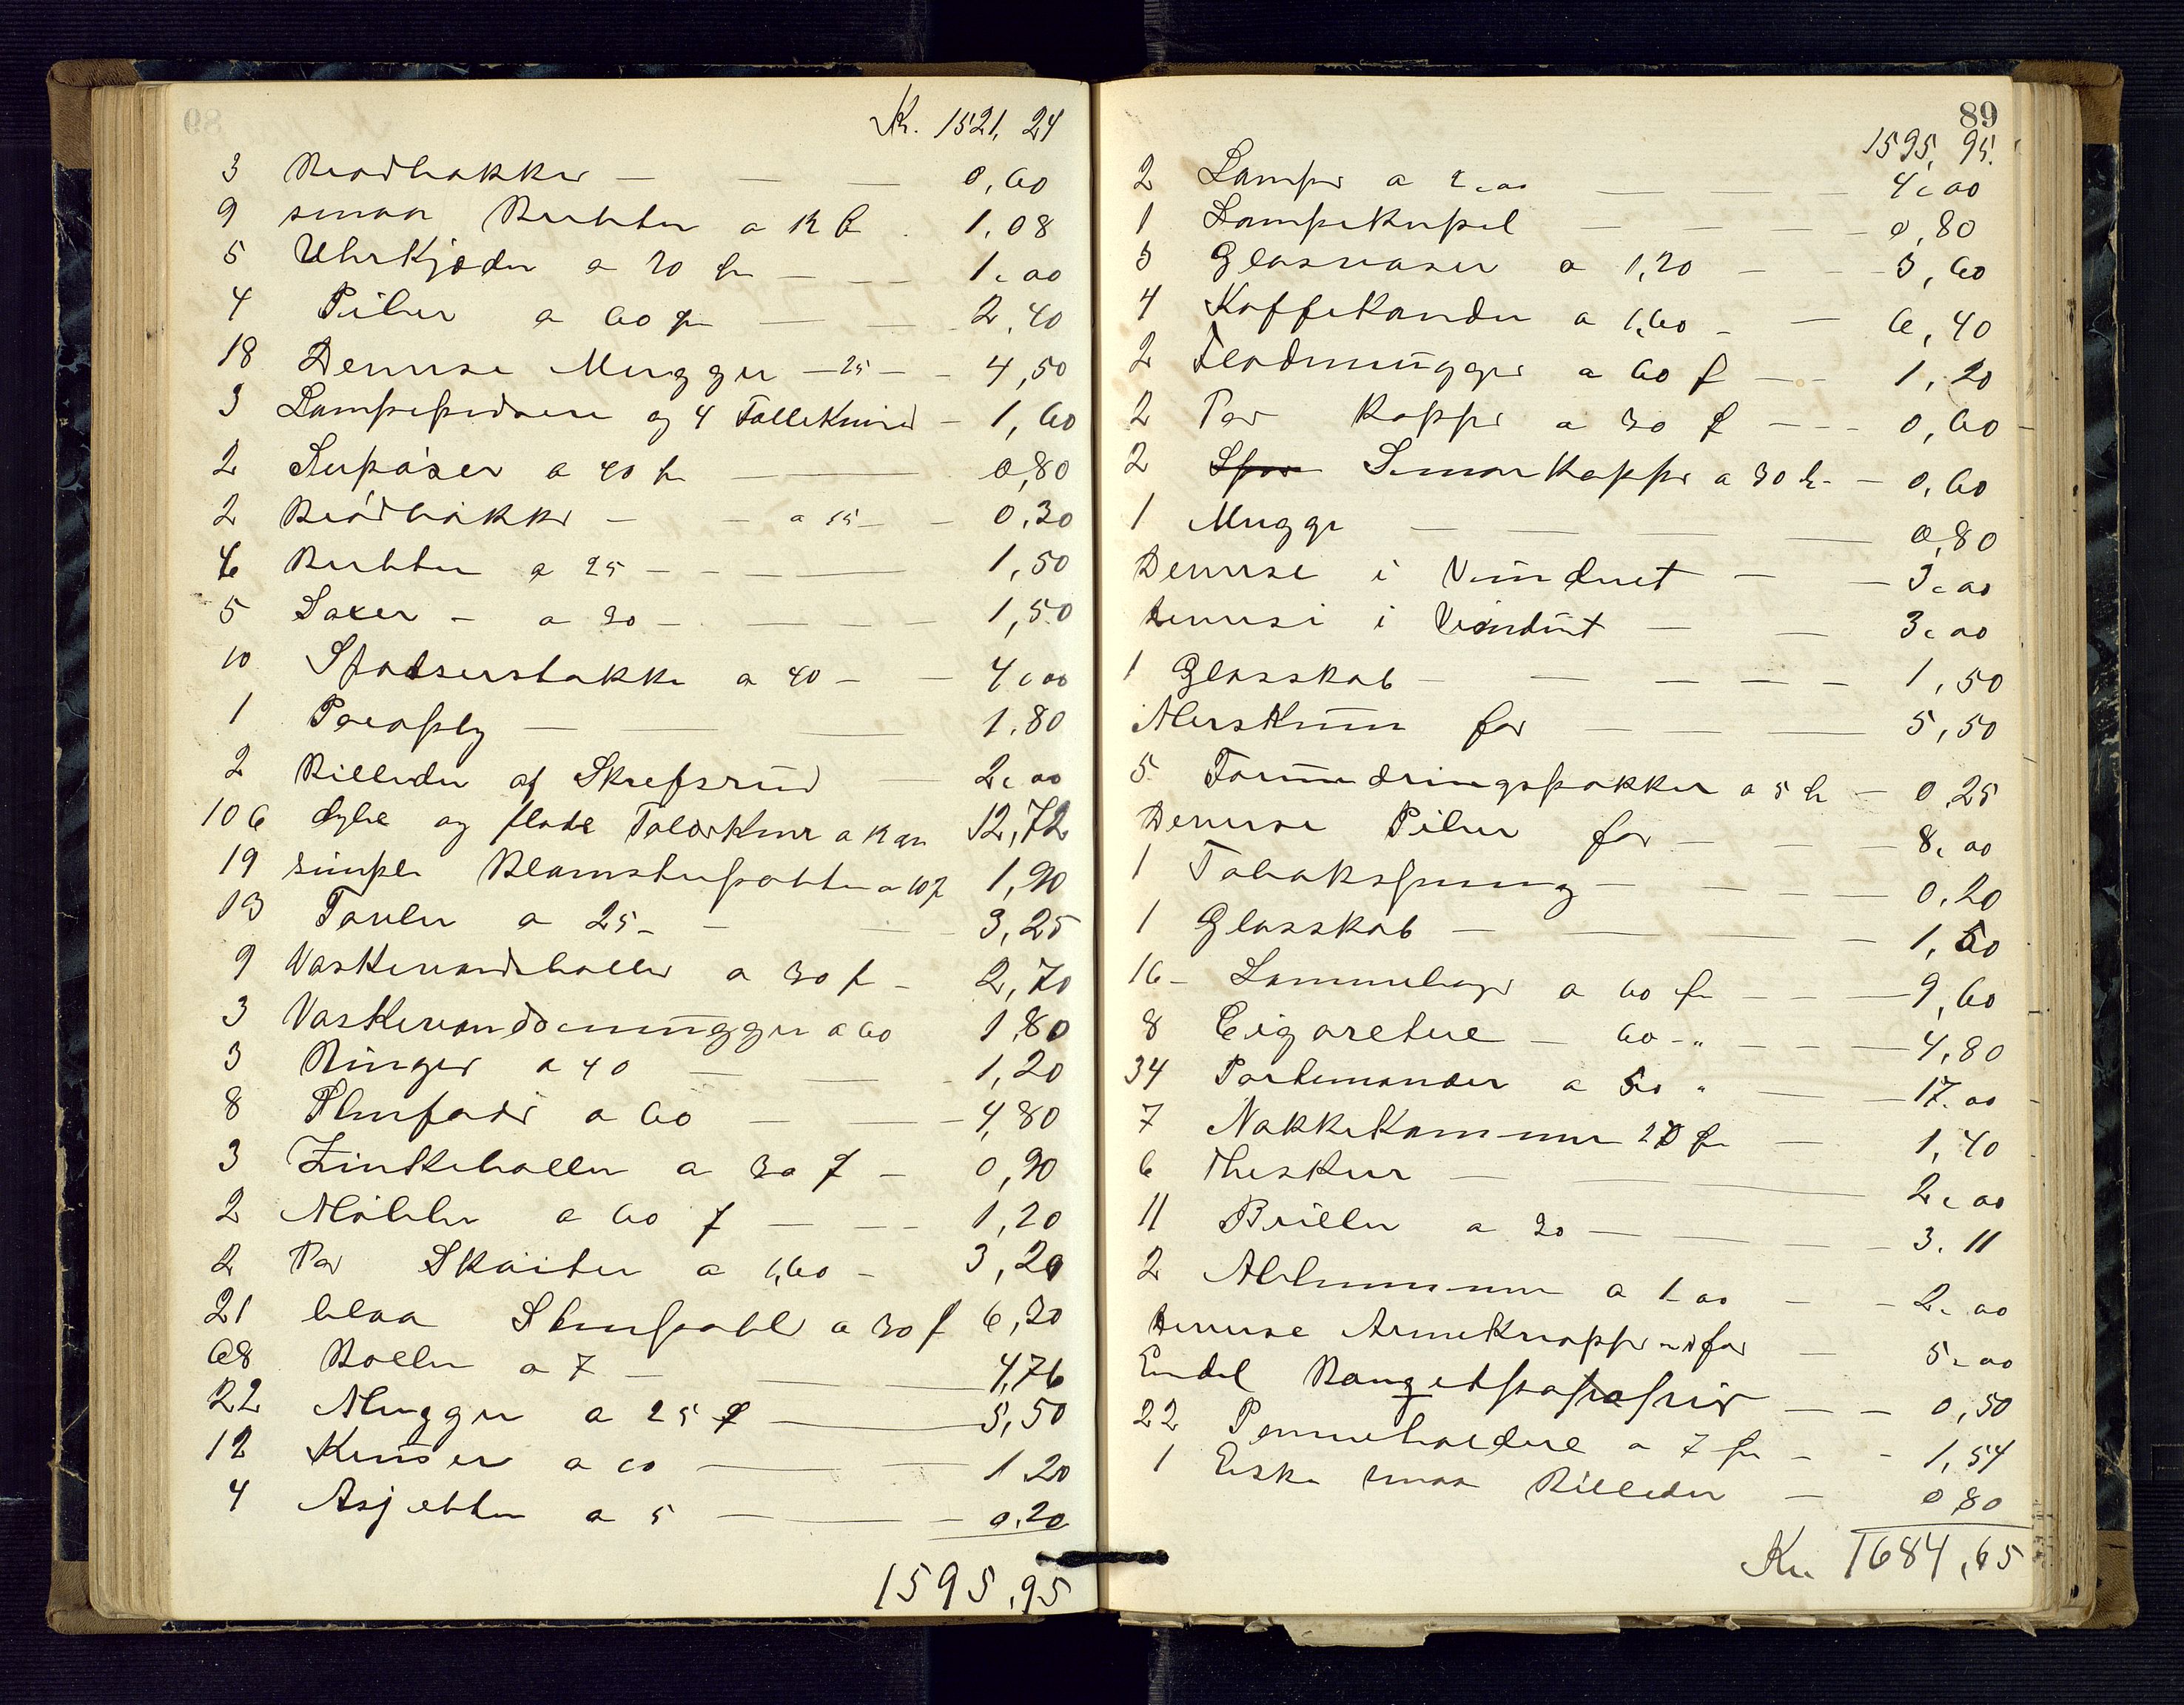 Kr. 1521,24
3 Brødbakker — — — 0,60
9 smaa Bøtter a 12 ø. 1,08
5 Uhrkjæder a 20 ør — — — 1,00
4 Piber a 60 ør — — 2,40
18 Diverse Mugger — 25 — — 4,50
3 Lampeskjærme og 4 Tallekner — 1,60
2 a 40 ør — 0,80
2 Brødbakker — — a 15 — — 0,30
6 Bøtter a 25 — — — 1,50
5 Saxer — a 30 — — — — 1,50
10 Spadserstokke a 40 — — 4,00
1 Paraply — — — 1,80
2 Billeder af Skrefsrud — 2,00
106 dybe og flade Talerkner a 12 ør 12,72
19 simple Blomsterpotter a 10 ø 1,90
13 Tavler a 25 — — — — 3,25
9 Vaskevandsboller a 30 ø — 2,70
3 Vaskevandsmugger a 60 1,80
3 Ringer a 40 — — — 1,20
8 a 60 — — — 4,80
3 Zinkboller a 30 ø — 0,90
2 a 60 ø — — — 1,20
2 Par Skøiter a 1,60 — 3,20
21 blaa a 30 ø 6,30
68 Boller a 7 — — 4,76
22 Mugger a 25 ø — 5,50
12 Kruser a 10 — — 1 20
4 Asjetter a 5 — — — 0,20
1595,95
89
1595,95
2 Lamper a 2,00 — — 4,00
1 Lampekupel — — — — 0,80
3 Glasvaser a 1,20 — — 3,60
4 Kaffekander a 1,60 — — 6,40
2 Flødemugger a 60 ø — — 1,20
2 Par Kopper a 30 ø — — — 0,60
2 Smørkopper a 30 ør — 0,60
1 Mugge — — — 0,80
Diverse i Vinduet — — 3,00
Diverse i Vinduet — — 3,00
1 Glasskab — — — — — 1,50
Merskum for — — — 5,50
5 Forundringspakker a 5 ør — 0,25
Diverse Piber for — — — 8,00
1 Tobakspung — — — — 0,20
1 Glasskab — — — 1,50
16 Lommebøger a 60 ør — — — 9,60
8 Cigaretuie — 60 - " — — — 4,80
34 Portemonæer a 50 " — — 17,00
7 Nakkekammer 20 ør — 1,40
6 Theskeer — — 2,00
11 Briller a 30 — — — — 3.11
2 Albummer a 1,00 — — 2,00
Diverse Armeknapper for — 5,00
Endel — — 0,50
22 Penneholdere a 7 ør — — 1,54
1 Eske smaa Billeder — 0 80
Kr. 1684,65